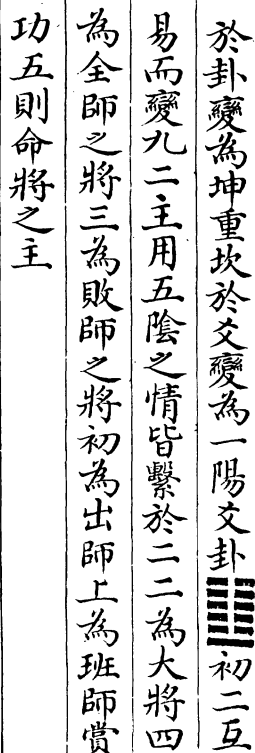 於卦變為坤重坎於爻變為一陽爻卦䷆初二互
易而變九二主用五陰之情皆繫於二二為大將四
為全師之將三為敗師之將初為出師上為班師賞
功五則命將之主